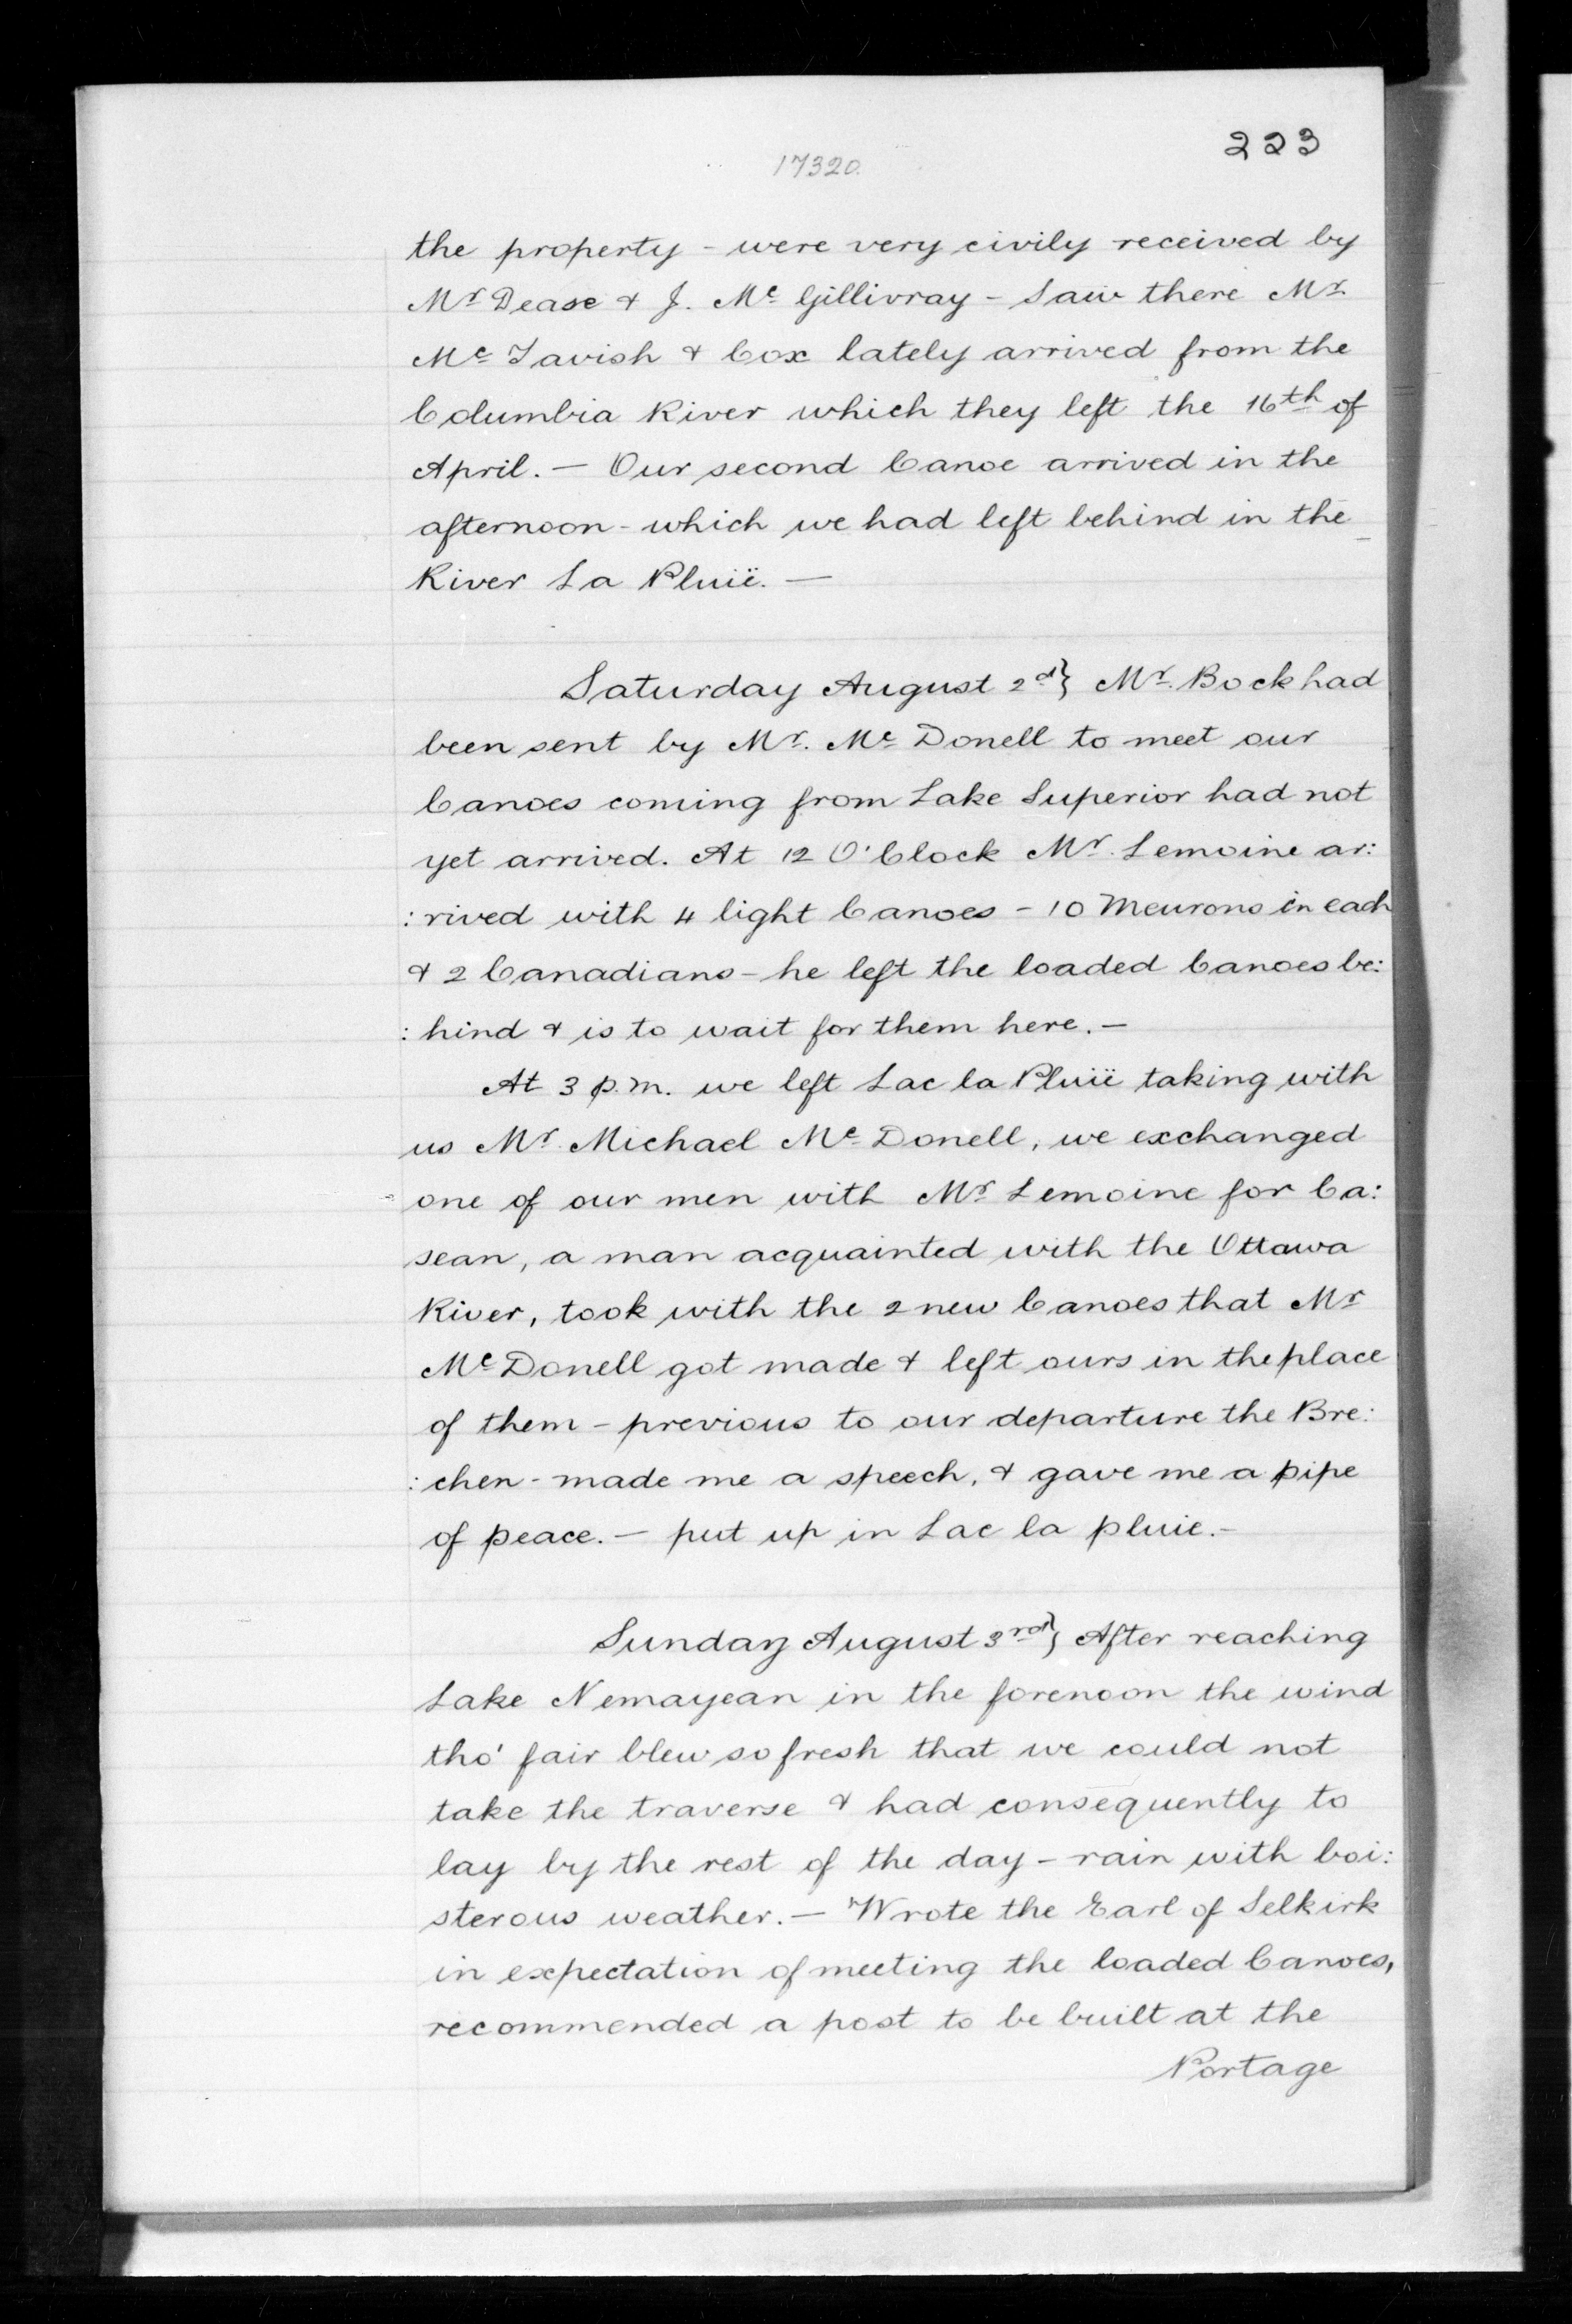 223
17320.
the property - were very civily received by
Mr Dease & J. Mc Gillivray - Saw there Mr.
Mc Tavish & Cox lately arrived from the
Columbia River which they left the 16th of
April. — Our second Canoe arrived in the
afternoon - which we had left behind in the
River La Pluië. —
Saturday August 2d} Mr. Bock had
been sent by Mr. Mc Donell to meet our
Canoes coming from Lake Superior had not
yet arrived. At 12 O'Clock Mr. Lemoine ar:
:rived with 4 light Canoes - 10 Meurons in each
& 2 Canadians - he left the loaded Canoes be:
:hind & is to wait for them here. —
At 3 p.m. we left Lac la Pluië taking with
us Mr. Michael Mc Donell, we exchanged
one of our men with Mr Lemoine for Ca:
sean, a man acquainted with the Ottawa
River, took with the 2 new Canoes that Mr
Mc Donell got made & left ours in the place
of them - previous to our departure the Bre:
:chen - made me a speech, & gave me a pipe
of peace. — put up in Lac la pluie. -
Sunday August 3rd} After reaching
Lake Nemayean in the forenoon the wind
tho' fair blew so fresh that we could not
take the traverse & had consequently to
lay by the rest of the day - rain with boi:
sterous weather. — Wrote the Earl of Selkirk
in expectation of meeting the loaded Canoes,
recommended a post to be built at the
Portage